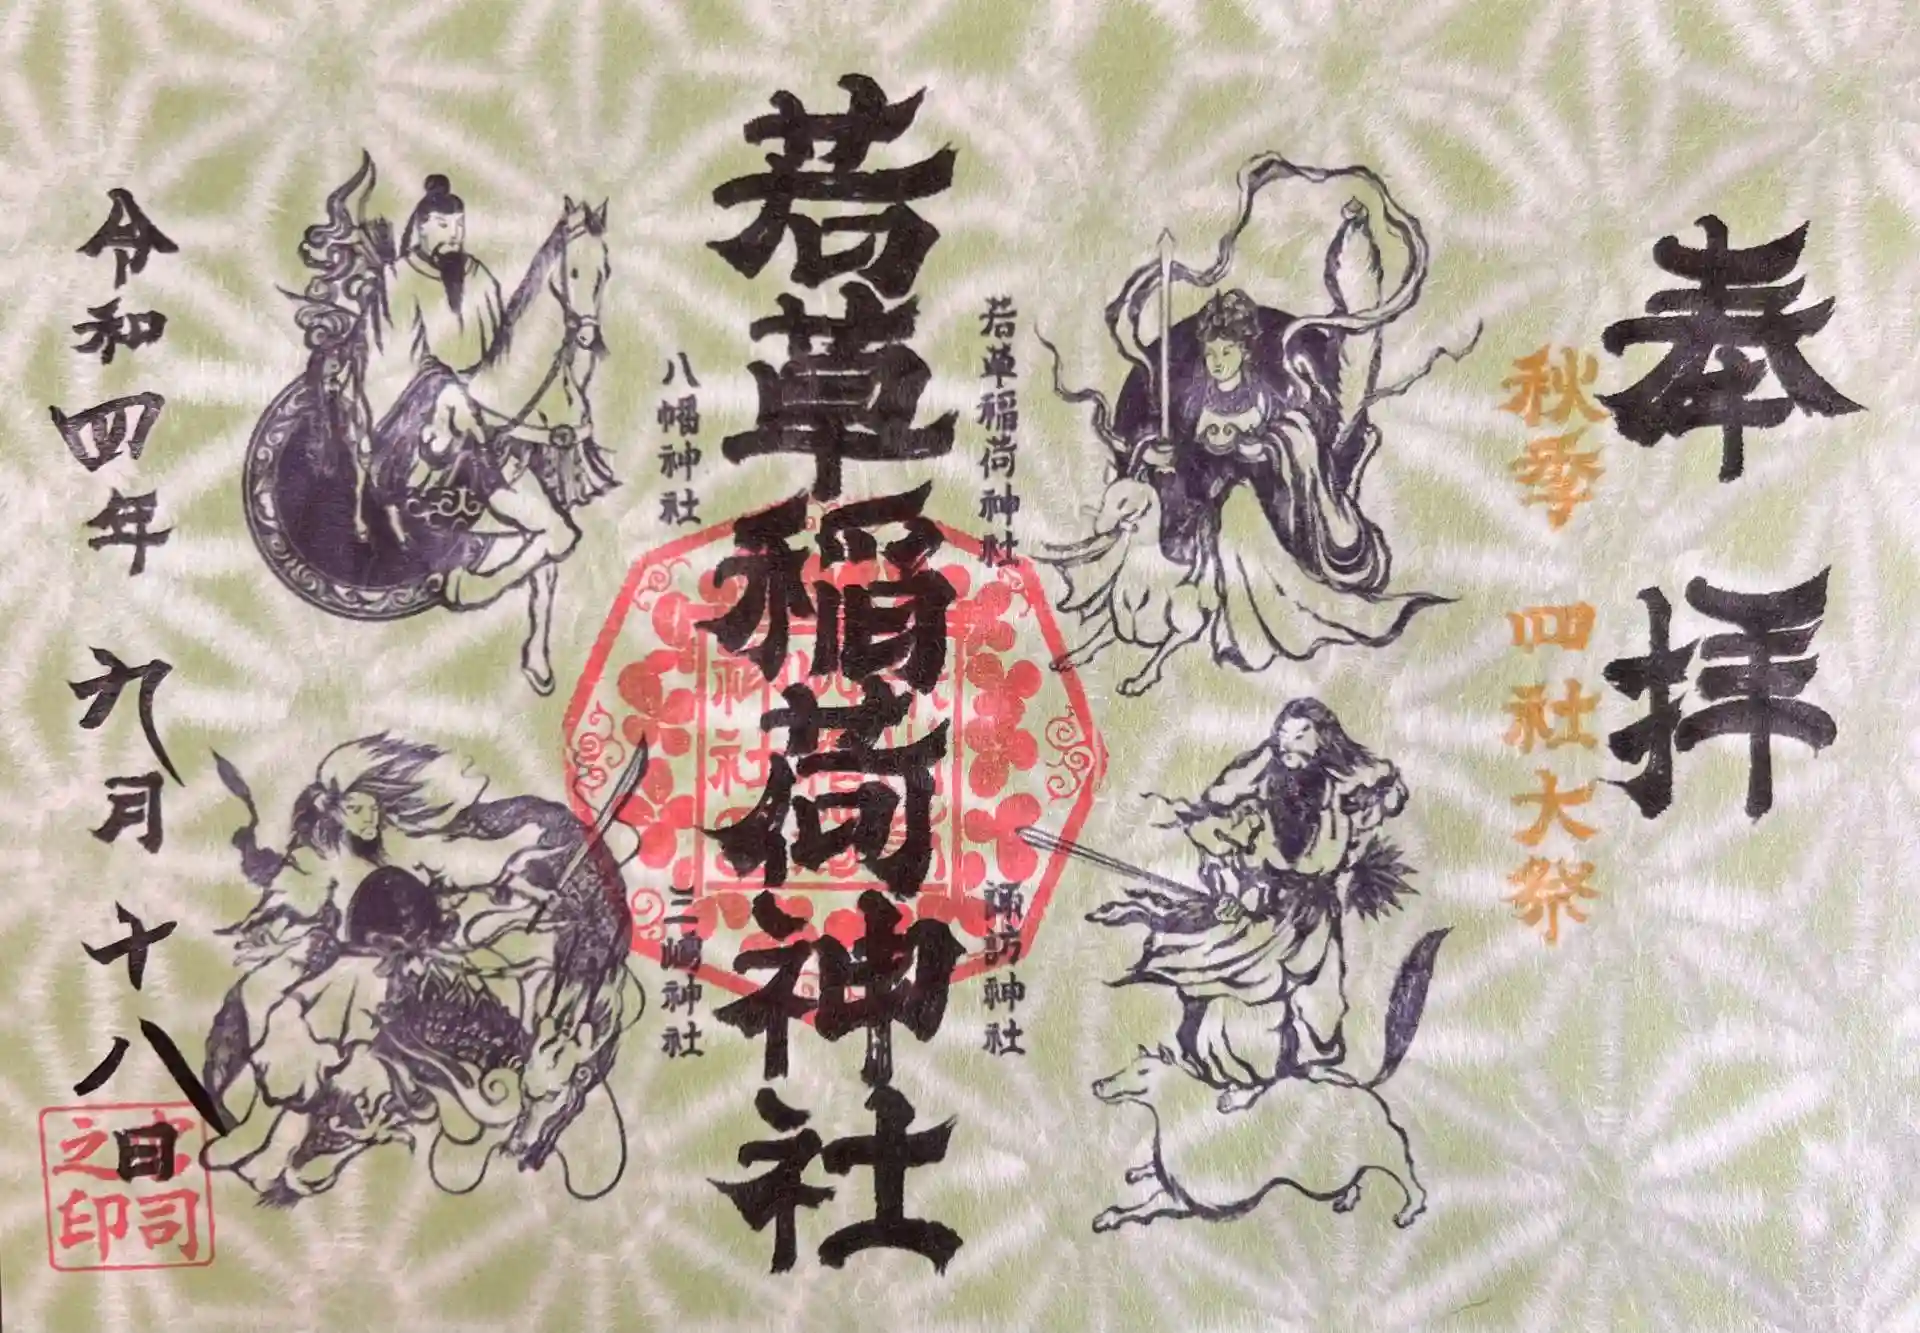 奉拝
秋季 四社大祭
若草稲荷神社
諏訪神社
若草稲荷神社
八幡神社
三嶋神社
令和四年 九月十八日
宮司
之印